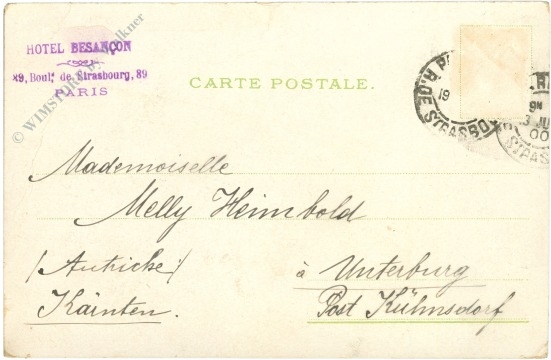 HOTEL BESANÇON
89, Boulᵈ de Strasbourg, 89
PARIS
© WIMSTORE
CARTE POSTALE.
R. DE STRASBO
19
3 JU
00
STRASB
Mademoiselle
Melly Heimbold
(Autriche)
à Unterburg
Kärnten.
Post Kühnsdorf